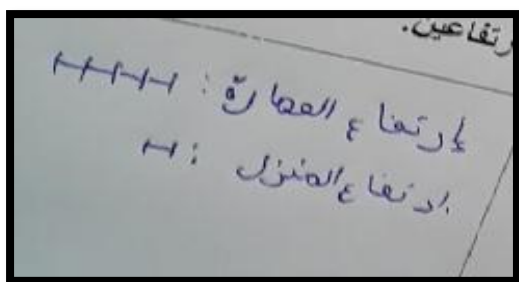 رتفاعين.
إرتفاع العمارة :
ارتفاع المنزل :